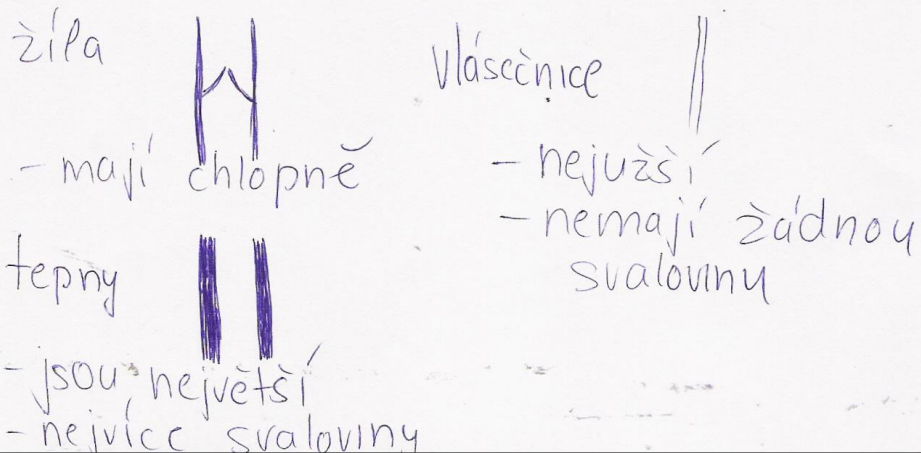 žíla
- mají chlopně
tepny
- jsou největší
- nejvíce svaloviny
vlásečnice
- nejužší
- nemají žádnou
svalovinu